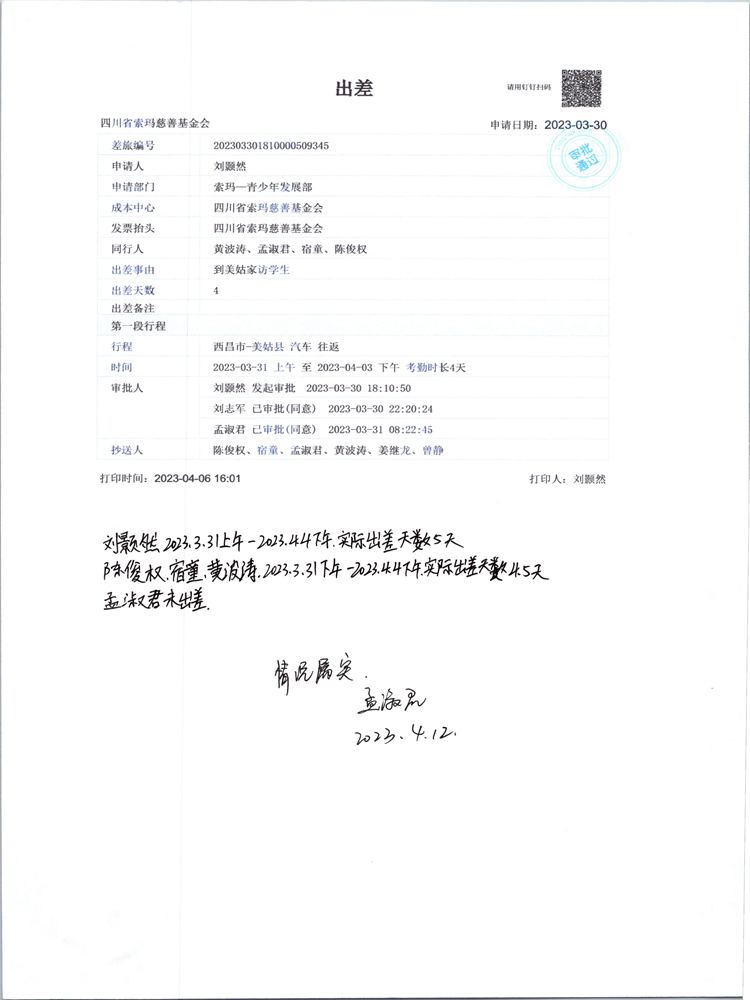 出差
请用钉钉扫码
四川省索玛慈善基金会 申请日期：2023-03-30
审批通过
差旅编号 202303301810000509345
申请人 刘颢然
申请部门 索玛—青少年发展部
成本中心 四川省索玛慈善基金会
发票抬头 四川省索玛慈善基金会
同行人 黄波涛、孟淑君、宿童、陈俊权
出差事由 到美姑家访学生
出差天数 4
出差备注
第一段行程
行程 西昌市-美姑县 汽车 往返
时间 2023-03-31 上午 至 2023-04-03 下午 考勤时长4天
审批人 刘颢然 发起审批 2023-03-30 18:10:50
刘志军 已审批(同意) 2023-03-30 22:20:24
孟淑君 已审批(同意) 2023-03-31 08:22:45
抄送人 陈俊权、宿童、孟淑君、黄波涛、姜继龙、曾静
打印时间：2023-04-06 16:01 打印人：刘颢然
刘颢然 2023.3.31上午-2023.4.4下午.实际出差天数5天
陈俊权.宿童.黄波涛.2023.3.31下午-2023.4.4下午.实际出差天数4.5天
孟淑君未出差.
情况属实.
孟淑君
2023.4.12.